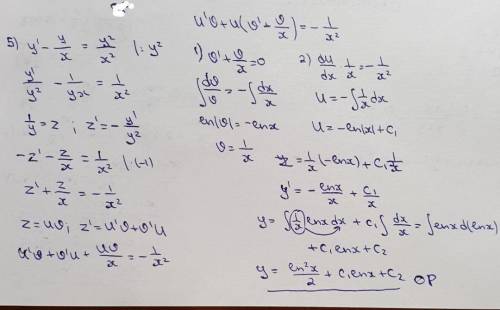 5) y' - y/x = y²/x² |: y²
y'/y² - 1/yx = 1/x²
1/y = z ; z' = - y'/y²
-z' - z/x = 1/x² |·(-1)
z' + z/x = - 1/x²
z = uυ; z' = u'υ + υ'u
u'υ + υ'u + uυ/x = - 1/x²
u'υ + u(υ' + υ/x) = - 1/x²
1) υ' + υ/x = 0
∫ dυ/υ = - ∫ dx/x
ln|υ| = -lnx
υ = 1/x
2) du/dx 1/x = - 1/x²
u = - ∫ 1/x dx
u = -ln|x| + C₁
z = 1/x (-lnx) + C₁ 1/x
y' = - lnx/x + C₁/x
y = ∫ 1/x lnx dx + C₁ ∫ dx/x = ∫ lnx d(lnx)
+ C₁ lnx + C₂
y = ln²x/2 + C₁ lnx + C₂ OP